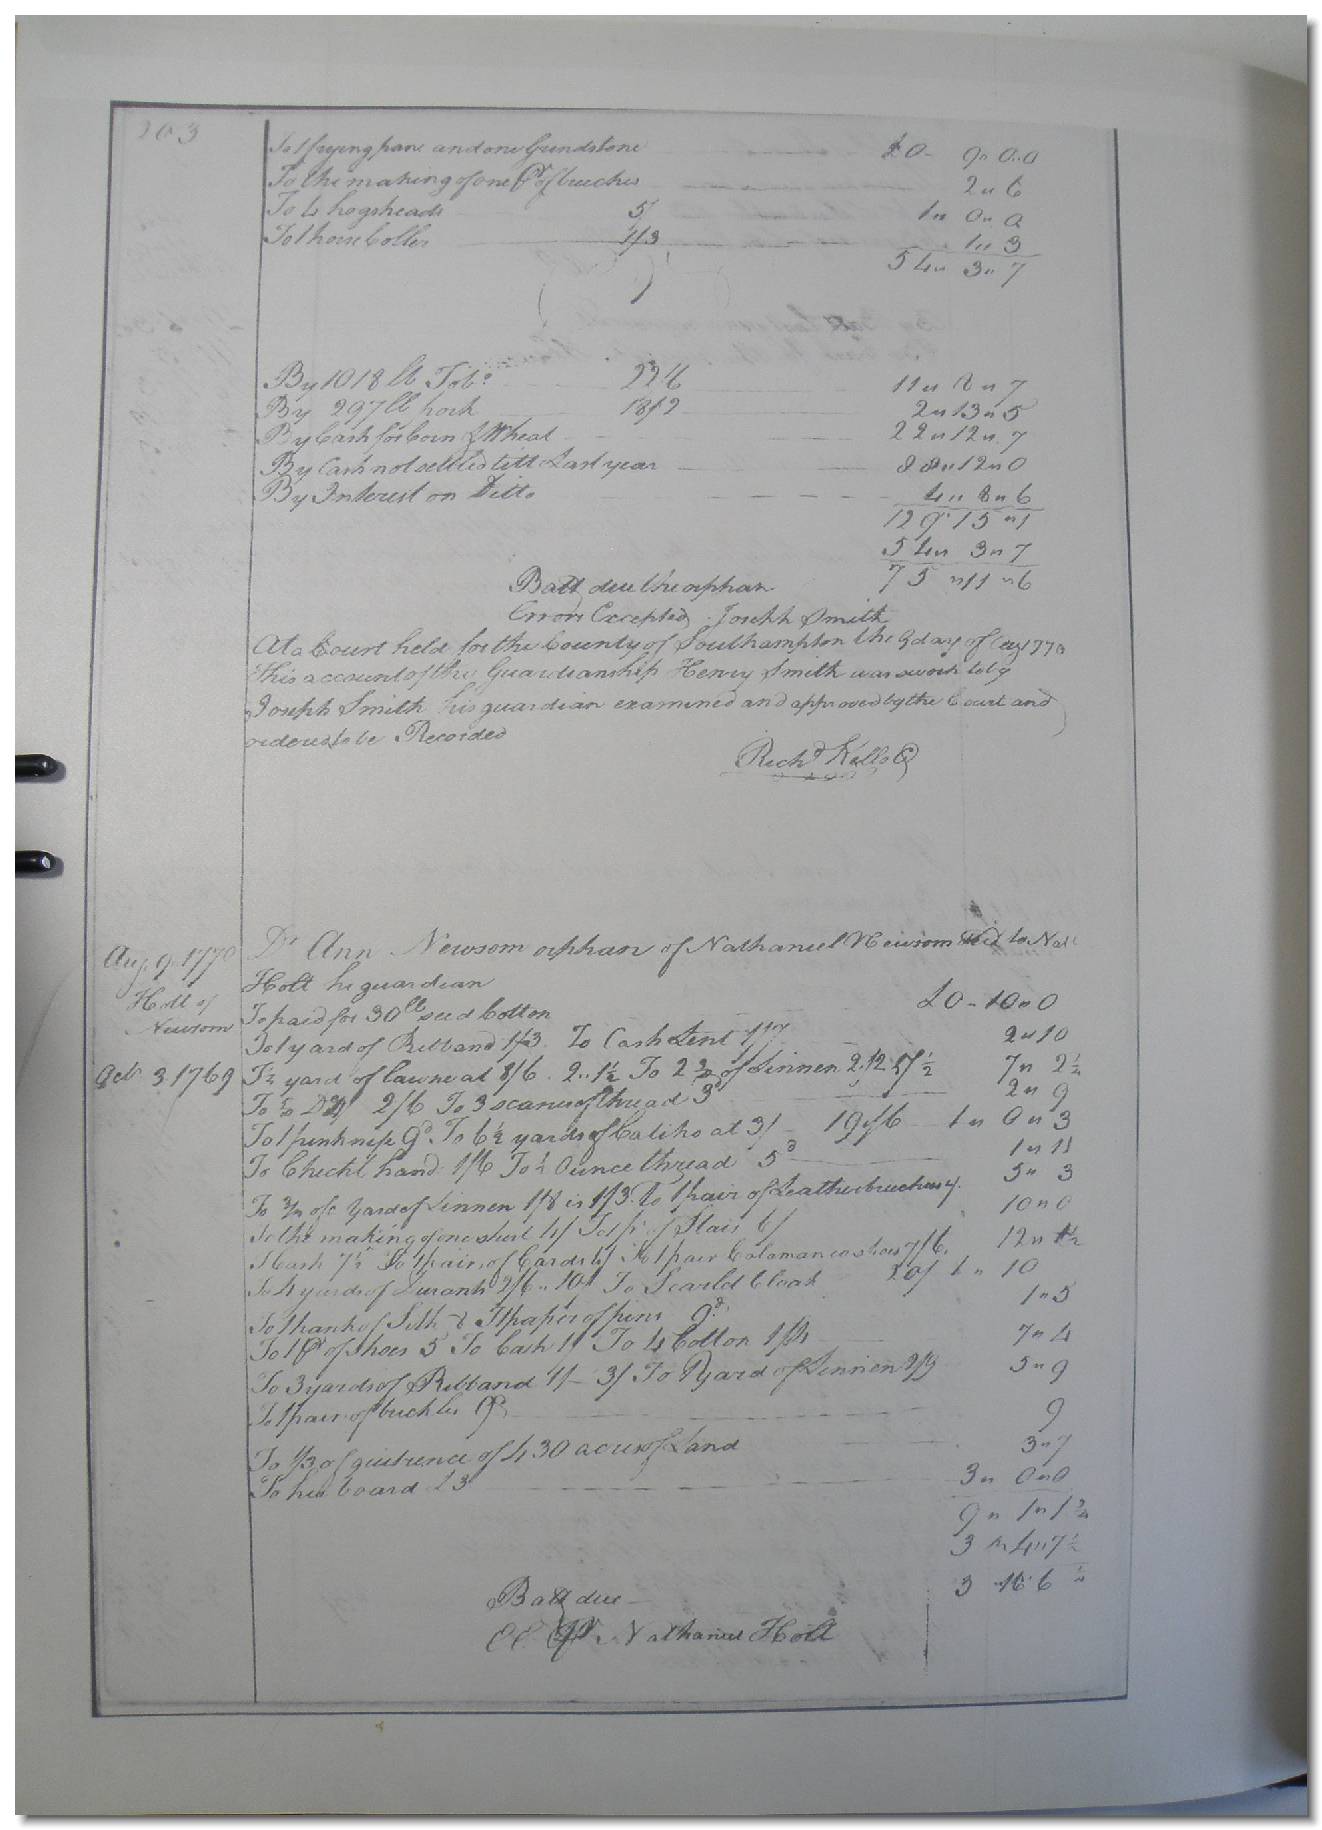 203
To 1 frying pane and one Grindstone £0 - 9 " 0 " 0
To the making of one Pr of breeches 2 " 6
To 4 hogsheads 5/ 1 " 0 " 0
To 1 horse Coller 1/3 1 " 3
54 " 3 " 7
By 1018 lb Tobo 22/6 11 " 8 " 7
By 297 lb pork 18/2 2 " 13 " 5
By Cash for Corn & Wheat 22 " 12 " 7
By Cash not settled till Last year 88 " 12 " 0
By Interest on Ditto 4 " 8 " 6
129 " 15 " 1
54 " 3 " 7
Ball due the orphan 75 " 11 " 6
Errors Excepted Joseph Smith
At a Court held for the County of Southampton the 9 day of Aug 1770
This account of the Guardianship Henry Smith was sworn to by
Joseph Smith his guardian examined and approved by the Court and
ordered to be Recorded
Richd Kello
Aug. 9. 1770 Dr Ann Newsom orphan of Nathaniel Newsom to Natl
Holt hr guardian
Holt of
Newsom
To paid for 30 lb seed Cotton £0 - 10 " 0
To 1 yard of Ribband 1/3 To Cash Lent 1/7 2 " 10
Octr 3 1769 T¼ yard of lawn at 8/6 2 " 1½ To 2 of Linnen 7 " 2½
To Do 2/6 To 3 scanes of thread 3d 2 " 9
To 1 penknife 9d To 6½ yards of Caliko at 3/ 19/6 1 " 0 " 3
To Checkt hand 1/6 To ½ Ounce thread 5d 1 " 11
To yard of Linnen 1/8 is 1/3 To 1 pair of Leather breeches 4/ 5 " 3
To the making of one shirt 4/ To 1 pr of Stais 6/ 10 " 0
Cash 7½ To 1 pair of Cards 4/ To 1 pair Calamanco shoes 7/6 12 " 1½
To 4 yards of Durants 2/6 " 10/ To Scarled Cloak 20/ 1 " 10
To 1 hank of Silk & 1 paper of pins 9d 1 " 5
To 1 Pr of shoes 5 To Cash 1/ To 4 Cotton 1/4 7 " 4
To 3 yards of Ribband 1/ - 3/ To 1 yard of Linnen 2/9 5 " 9
To 1 pair of buckles 9d 9
To 1/3 of quitrence of 430 acres of Land 3 " 7
To her board £3 3 " 0 " 0
9 " 1 " 1¾
3 " 4 " 7½
Ball due 3 16 6
E E Nathaniel Holt